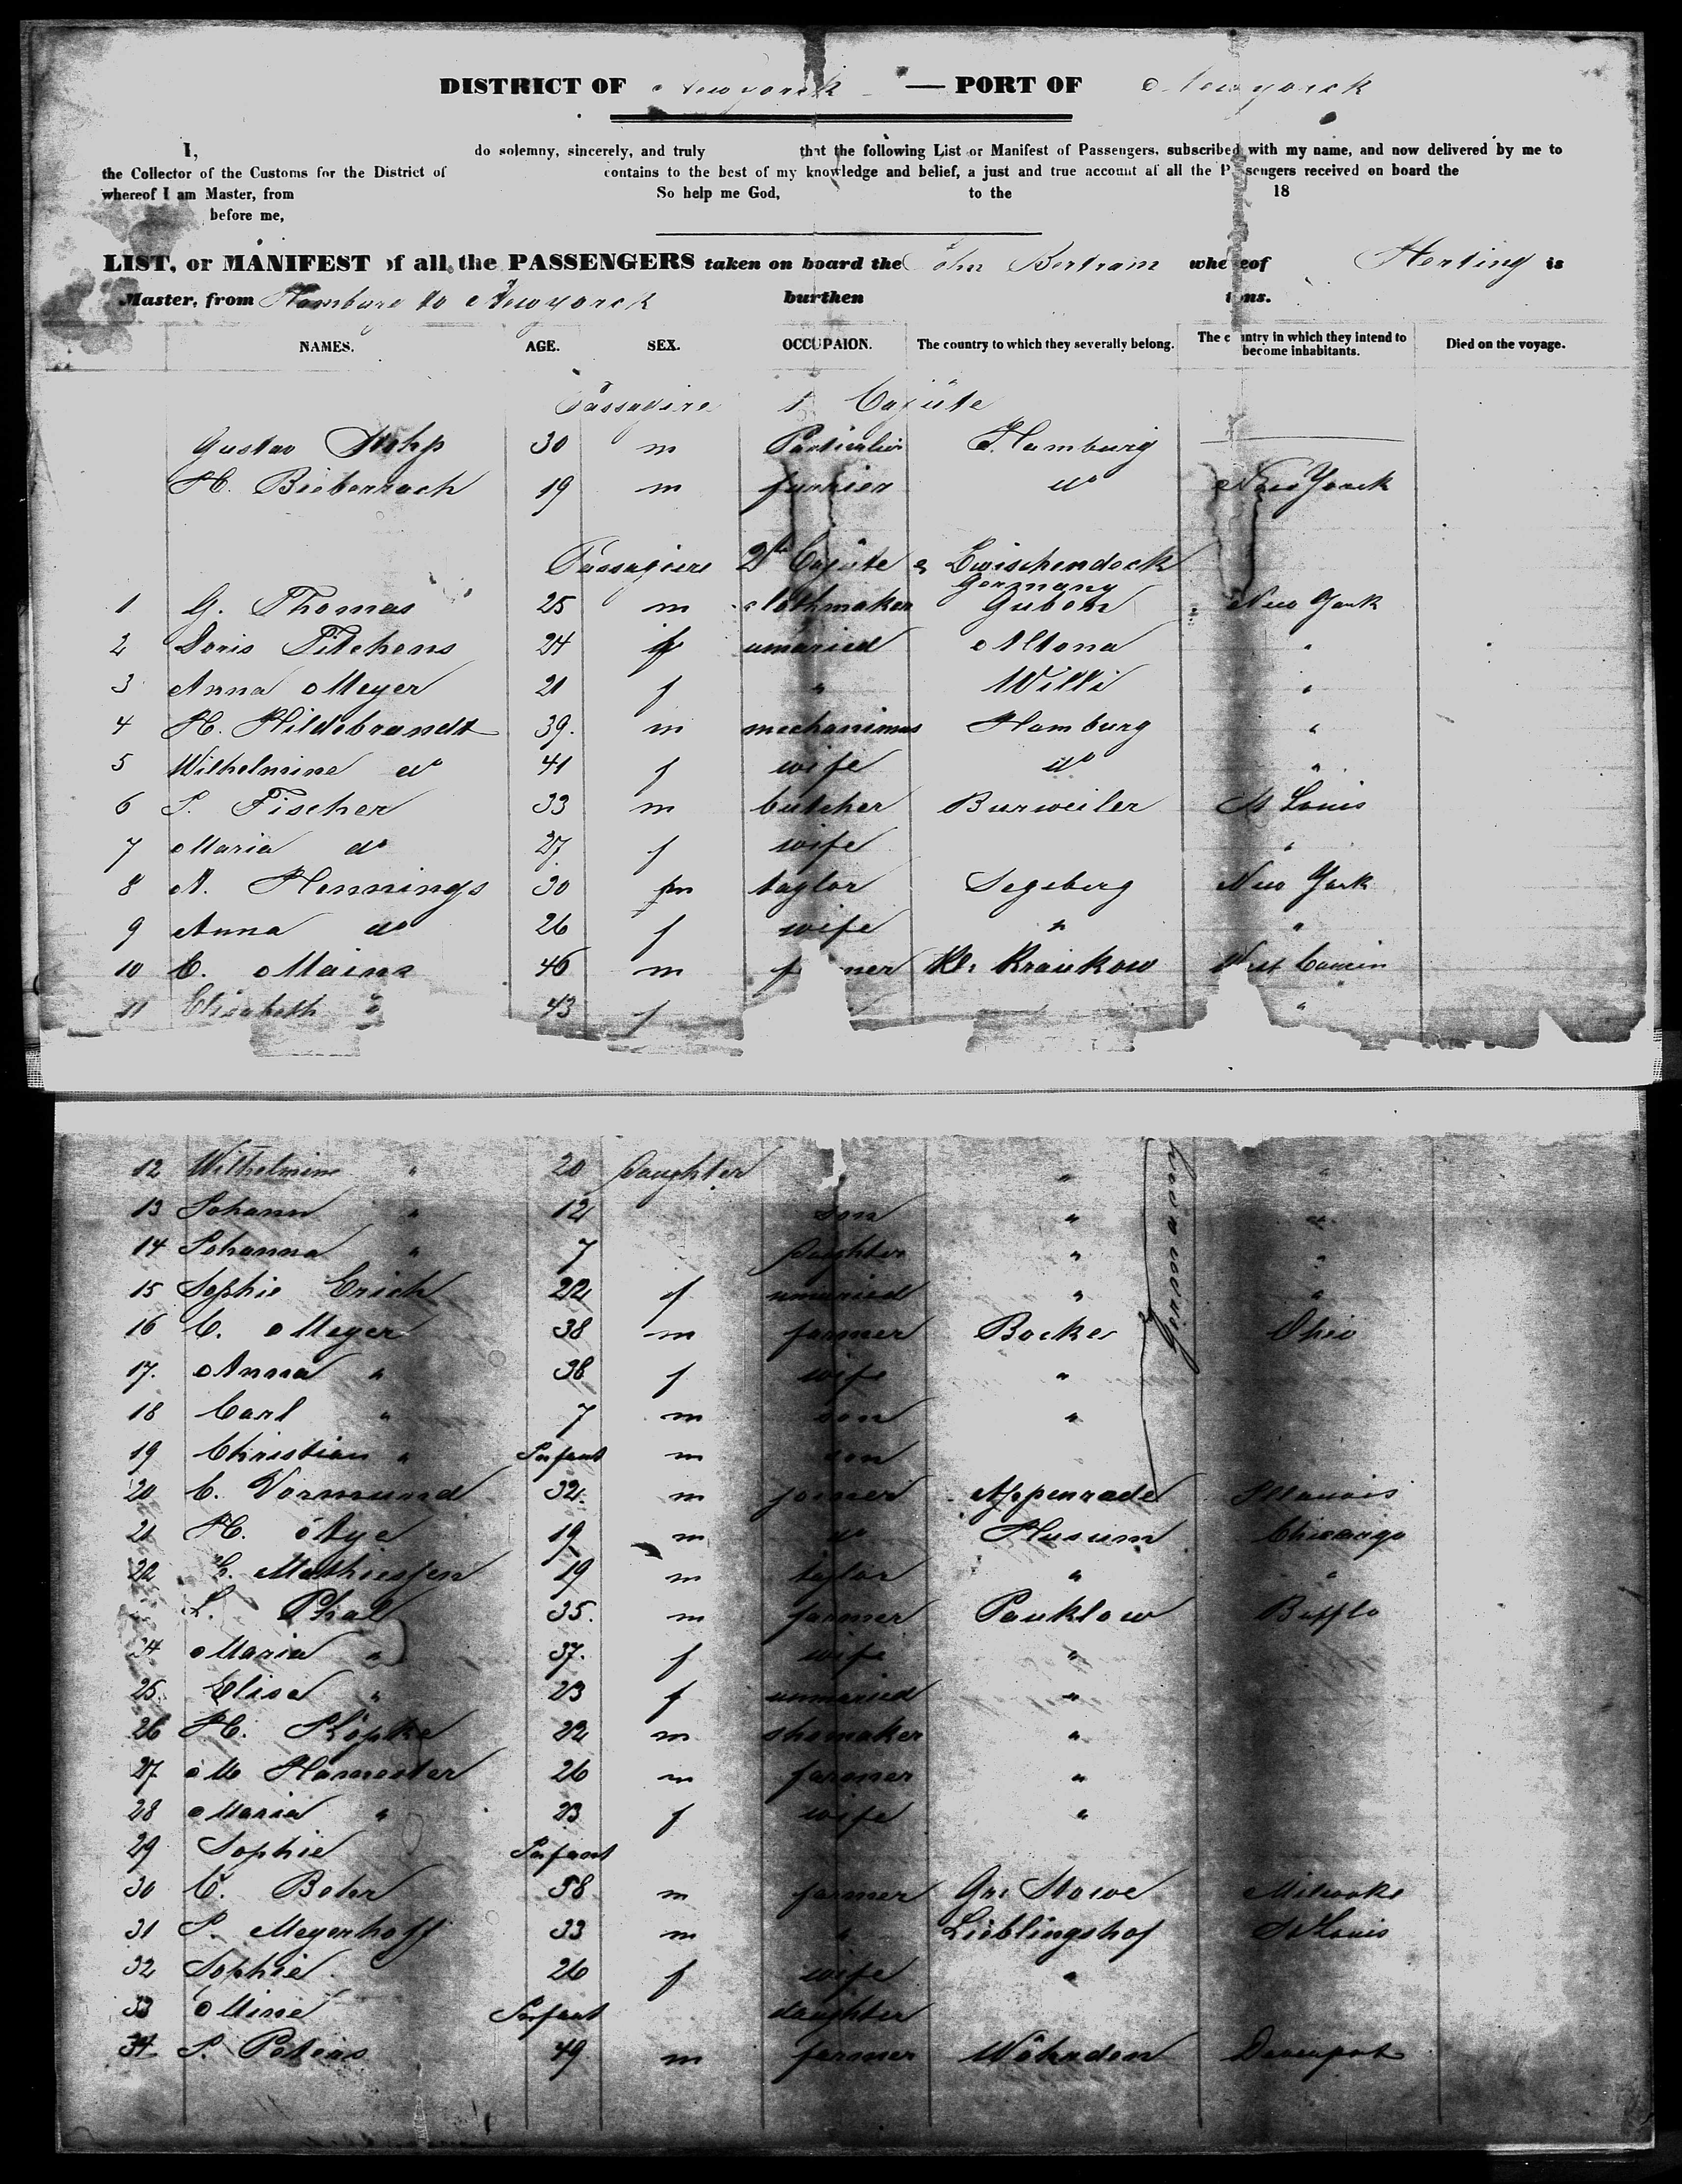 DISTRICT OF Newyorck — PORT OF Newyorck
I, do solemny, sincerely, and truly that the following List or Manifest of Passengers, subscribed with my name, and now delivered by me to
the Collector of the Customs for the District of contains to the best of my knowledge and belief, a just and true account af all the P sengers received on board the
whereof I am Master, from So help me God, to the 18
before me,
LIST, or MANIFEST of all the PASSENGERS taken on board the John Bertram whereof Herting is
Master, from Hamburg to Newyorck burthen tons.
NAMES. AGE. SEX. OCCUPAION. The country to which they severally belong. The country in which they intend to become inhabitants. Died on the voyage.
Passagire 1 Cajüte
Gustav 30 m Particulier Hamburg
H. Bieberrach 19 m furrier do New Yorck
Passagiere 2te Cajüte & Zwischendeck
Germany
1 G. Thomas 25 m clothmaker Guben New York
2 Doris Titchens 24 f unmaried Altona "
3 Anna Meyer 21 f " Willi "
4 H. Hildebrandt 39. m mechanimus Hamburg "
5 Wilhelmine do 41 f wife do "
6 P. Fischer 33 m butcher Burweiler St Louis
7 Maria do 27. f wife "
8 A. Hennings 30 m taylor Segeberg New York
9 Anna do 26 f wife " "
10 C. Mains 46 m f mer Kl. Kraukow
11 Elisabeth " 43 f "
12 Wilhelmine " 20 Daughter " "
13 Johann " 12 son " "
14 Johanna " 7 Daughter " "
15 Sophie Erich 22 f unmaried " "
Germany
16 C. Meyer 38 m farmer Backe Ohio
17. Anna " 38 f wife "
18 Carl " 7 m son "
19 Christian " Infant m son
20 C. Vormund 32. m joiner Appenrade Illinois
21 H. Aye 19 m do Husum Chicargo
22 Mathiessen 19 m taylor " "
L. Phal 35. m farmer Pauklow Bufflo
24 Maria " 37. f wife "
25. Elise " 23 f unmaried "
26 H. Köpke 22 m shomaker "
27 M Hamester 26 m farmer "
28 Maria " 23 f wife "
29 Sophie Infant
30 C. Bohr 58 m farmer Gr. Stowe Milwoke
31 P. Meyerhoff 33 m " Lieblingshof St Louis
32 Sophie 26 f wife "
33 Mine Infant daughter
34 P. Peters 49 m farmer Wöhrden Davenport